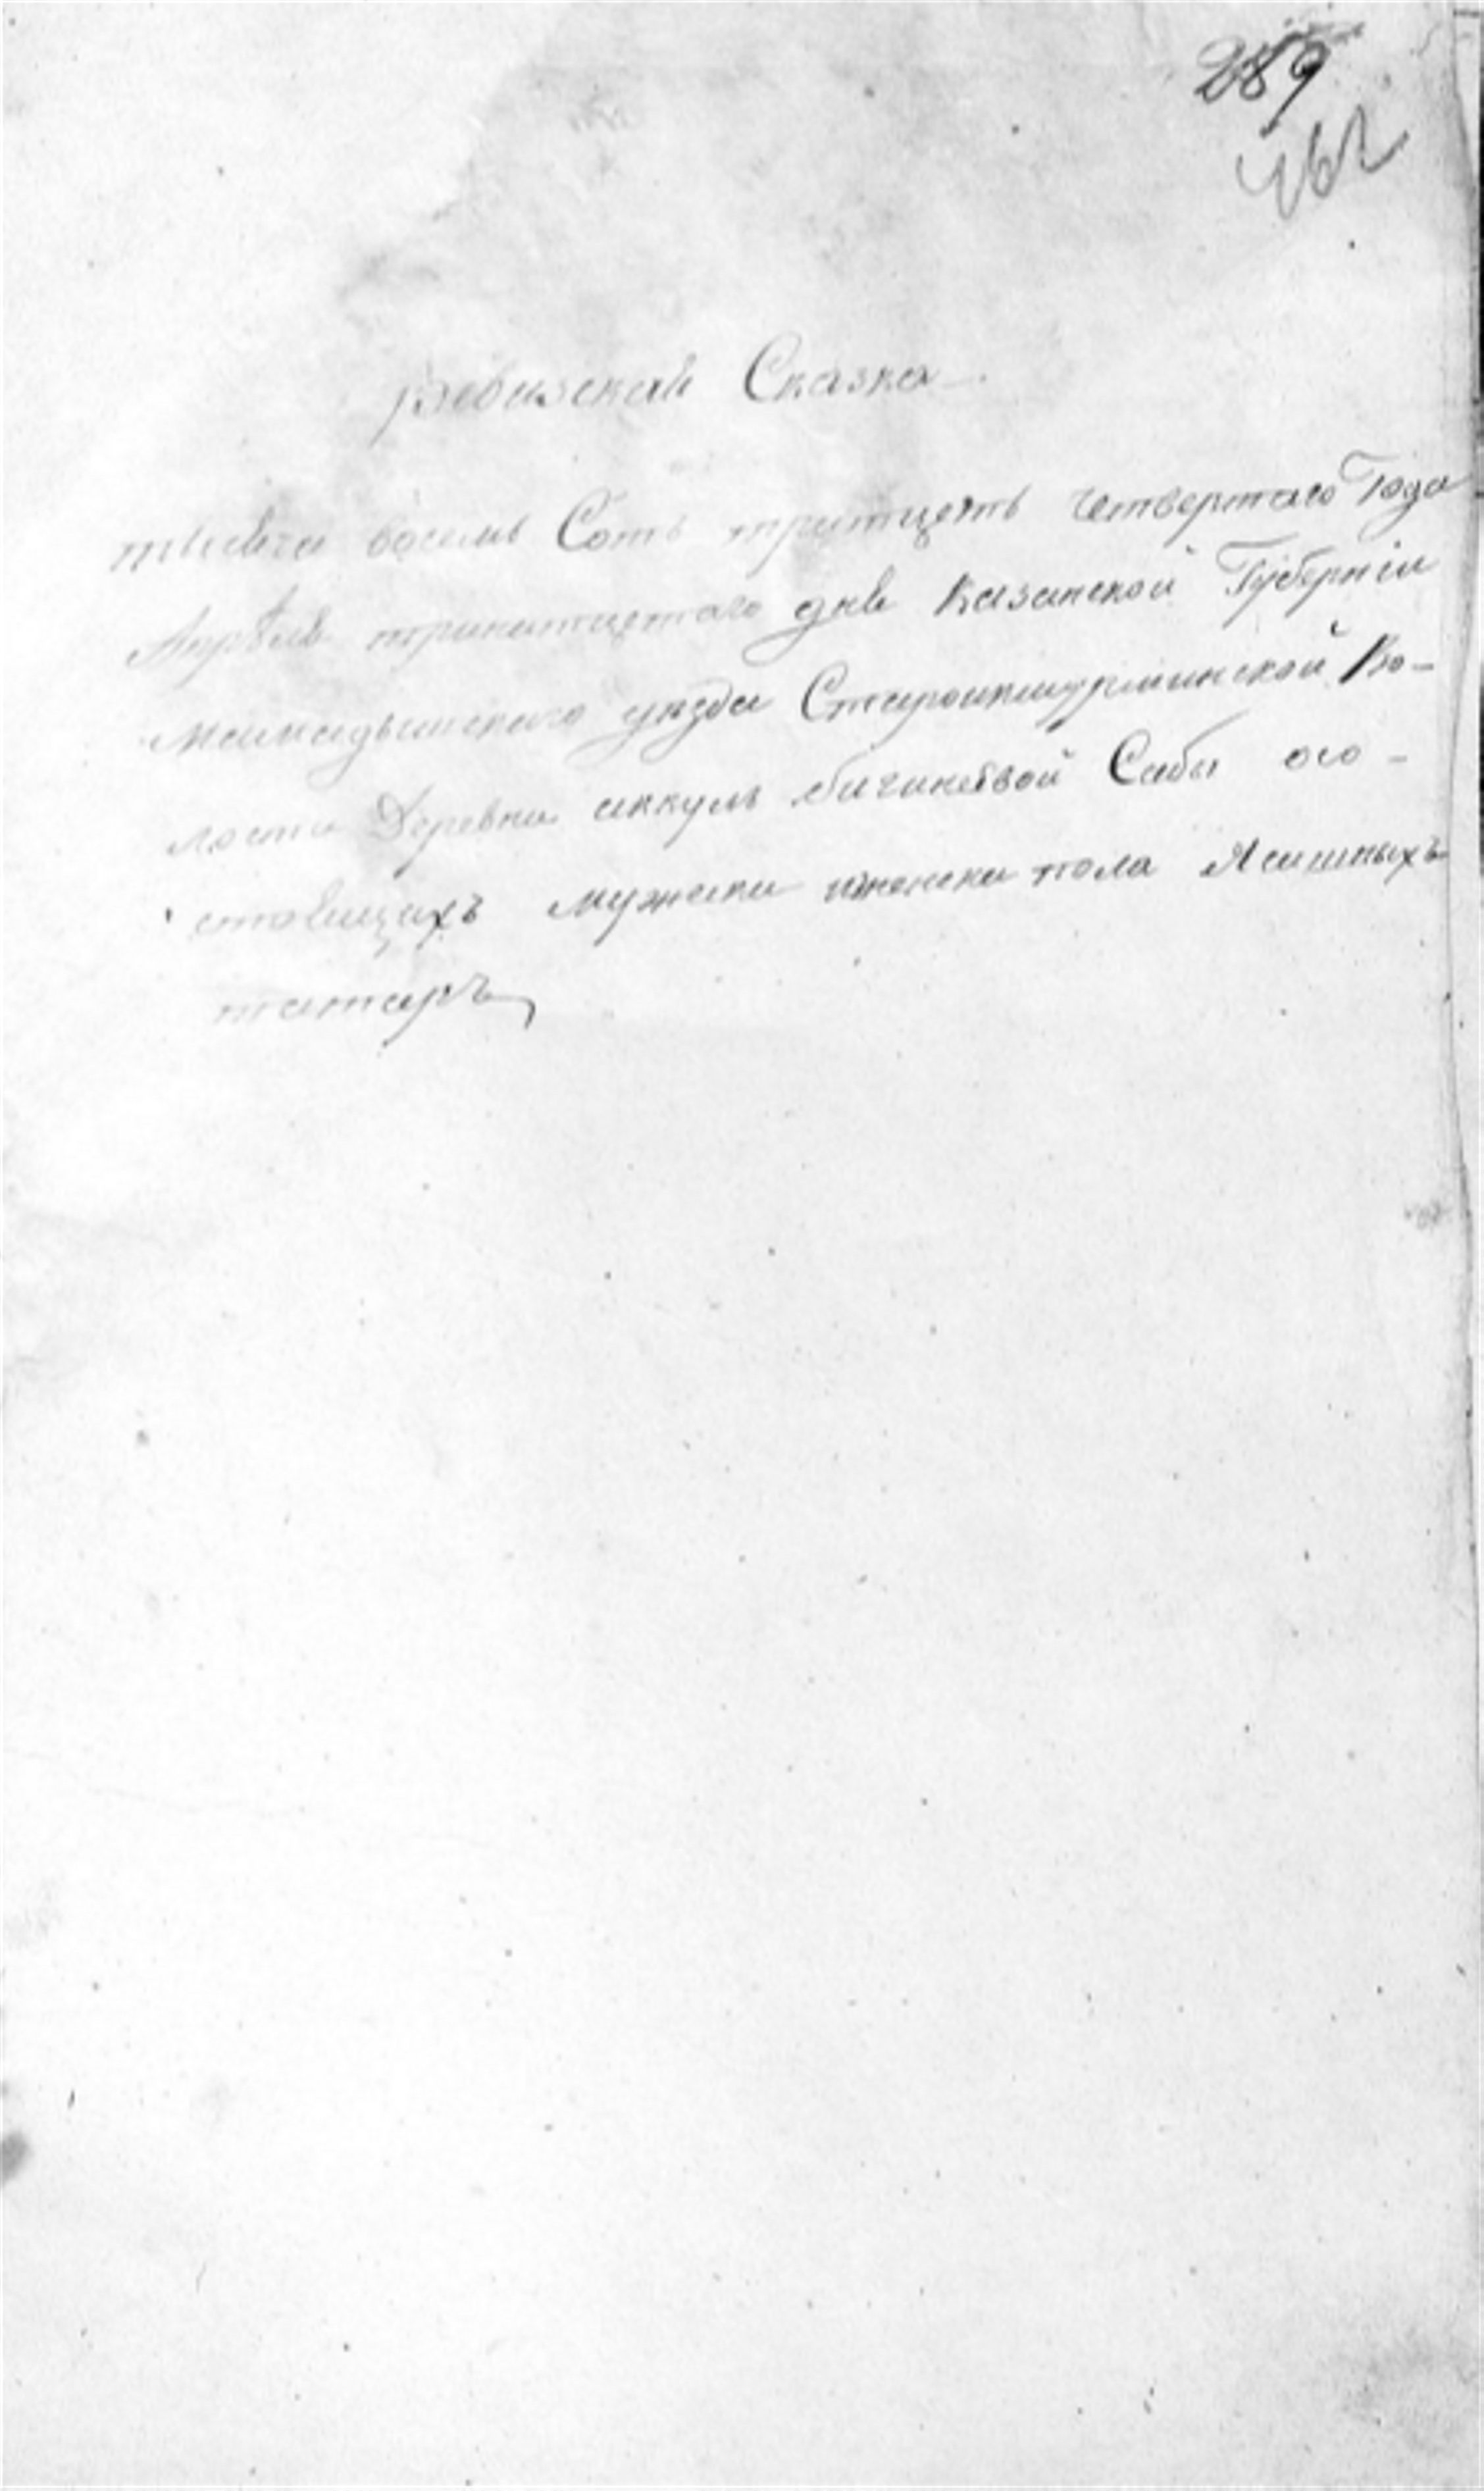 289
462
ревизская Сказка
тысяча восемь Сотъ тритцеть четвертаго Года
Апрѣля тринатцетаго дня Казанской Губерніи
мамадышскаго уезда Староикшурминской Во-
лости Деревни аккуль бигинеевой Сабы осо-
стоящихъ мужеска иженска пола Ясашныхъ
татаръ